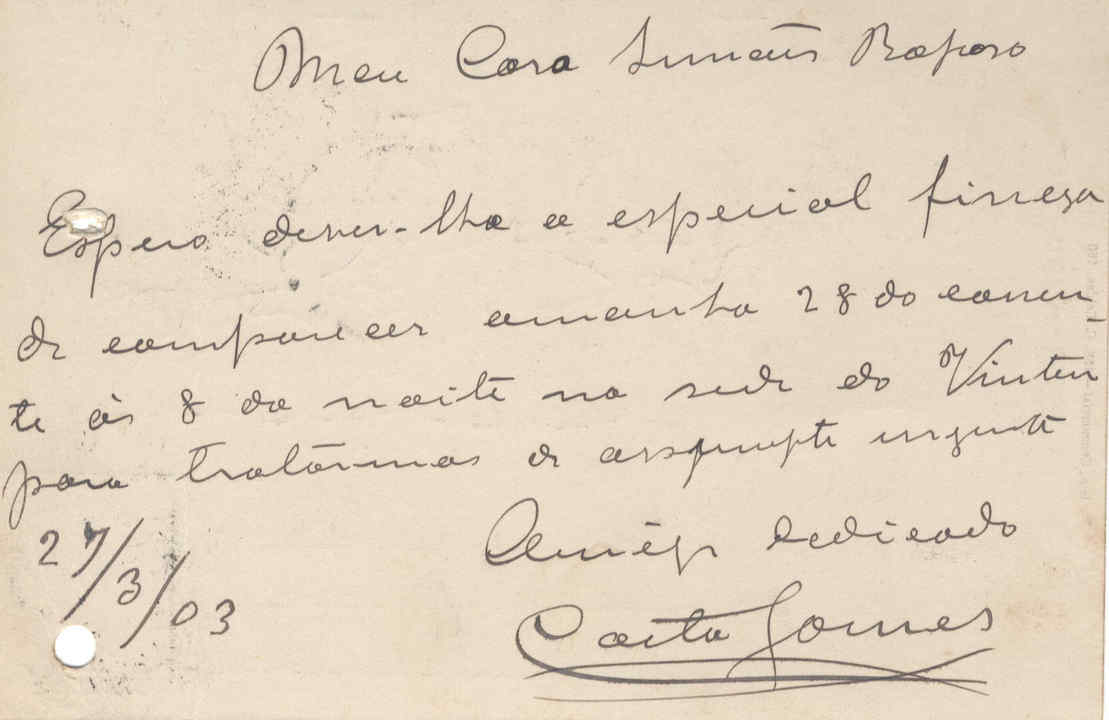 Meu Caro Simões Raposo
Espero dever-lhe a especial fineza
de comparecer amanha 28 do corren
te ás 8 da noite na sede do Vintem
para tratármos de assumpto urgente
Amigo dedicado
27/3/03
Costa Gomes